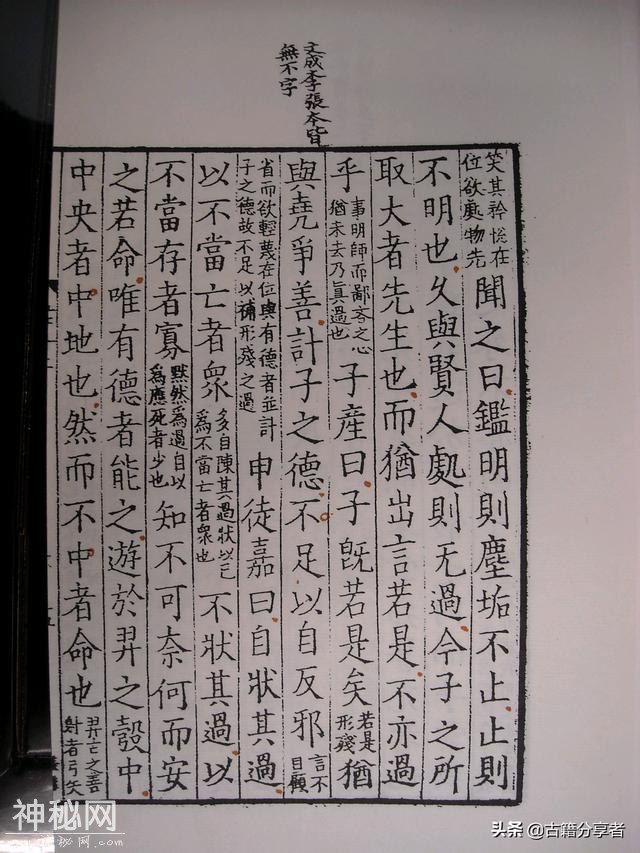 文成李張本皆
無不字
笑其矜悅在位欲處物先聞之曰鑑明則塵垢不止止則
不明也久與賢人處則无過今子之所
取大者先生也而猶出言若是不亦過
乎事明師而鄙吝之心猶未去乃真過也子產曰子既若是矣若是形殘猶
與堯爭善計子之德不足以自反邪言不自顧
省而欲輕蔑在位與有德者並計子之德故不足以補形殘之過申徒嘉曰自狀其過
以不當亡者眾多自陳其過狀以己為不當亡者眾也不狀其過以
不當存者寡默然為過自以為應死者少也知不可奈何而安
之若命唯有德者能之遊於羿之彀中
中央者中地也然而不中者命也羿古之善射者弓矢
神秘网
头条 @古籍分享者